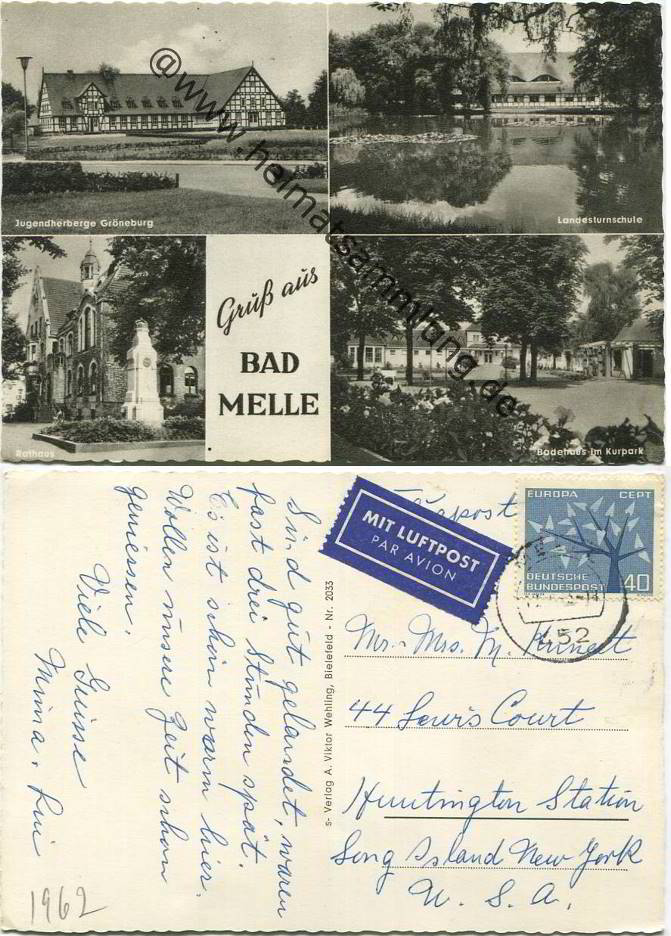 @www.heimatsammlung.de
Jugendherberge Gröneburg
Landesturnschule
Gruß aus
BAD
MELLE
Rathaus
Badehaus im Kurpark
Sind gut gelandet, waren
fast drei Stunden spät.
Es ist schön warm hier.
Wollen unsere Zeit schön
geniessen.
Viele Grüsse
1962
s- Verlag A. Viktor Wehling, Bielefeld - Nr. 2033
MIT LUFTPOST
PAR AVION
EUROPA CEPT
DEUTSCHE
BUNDESPOST 40
452
Mr. Mrs. M.
44 Lewis Court
Huntington Station
Long Island New York
U. S. A.